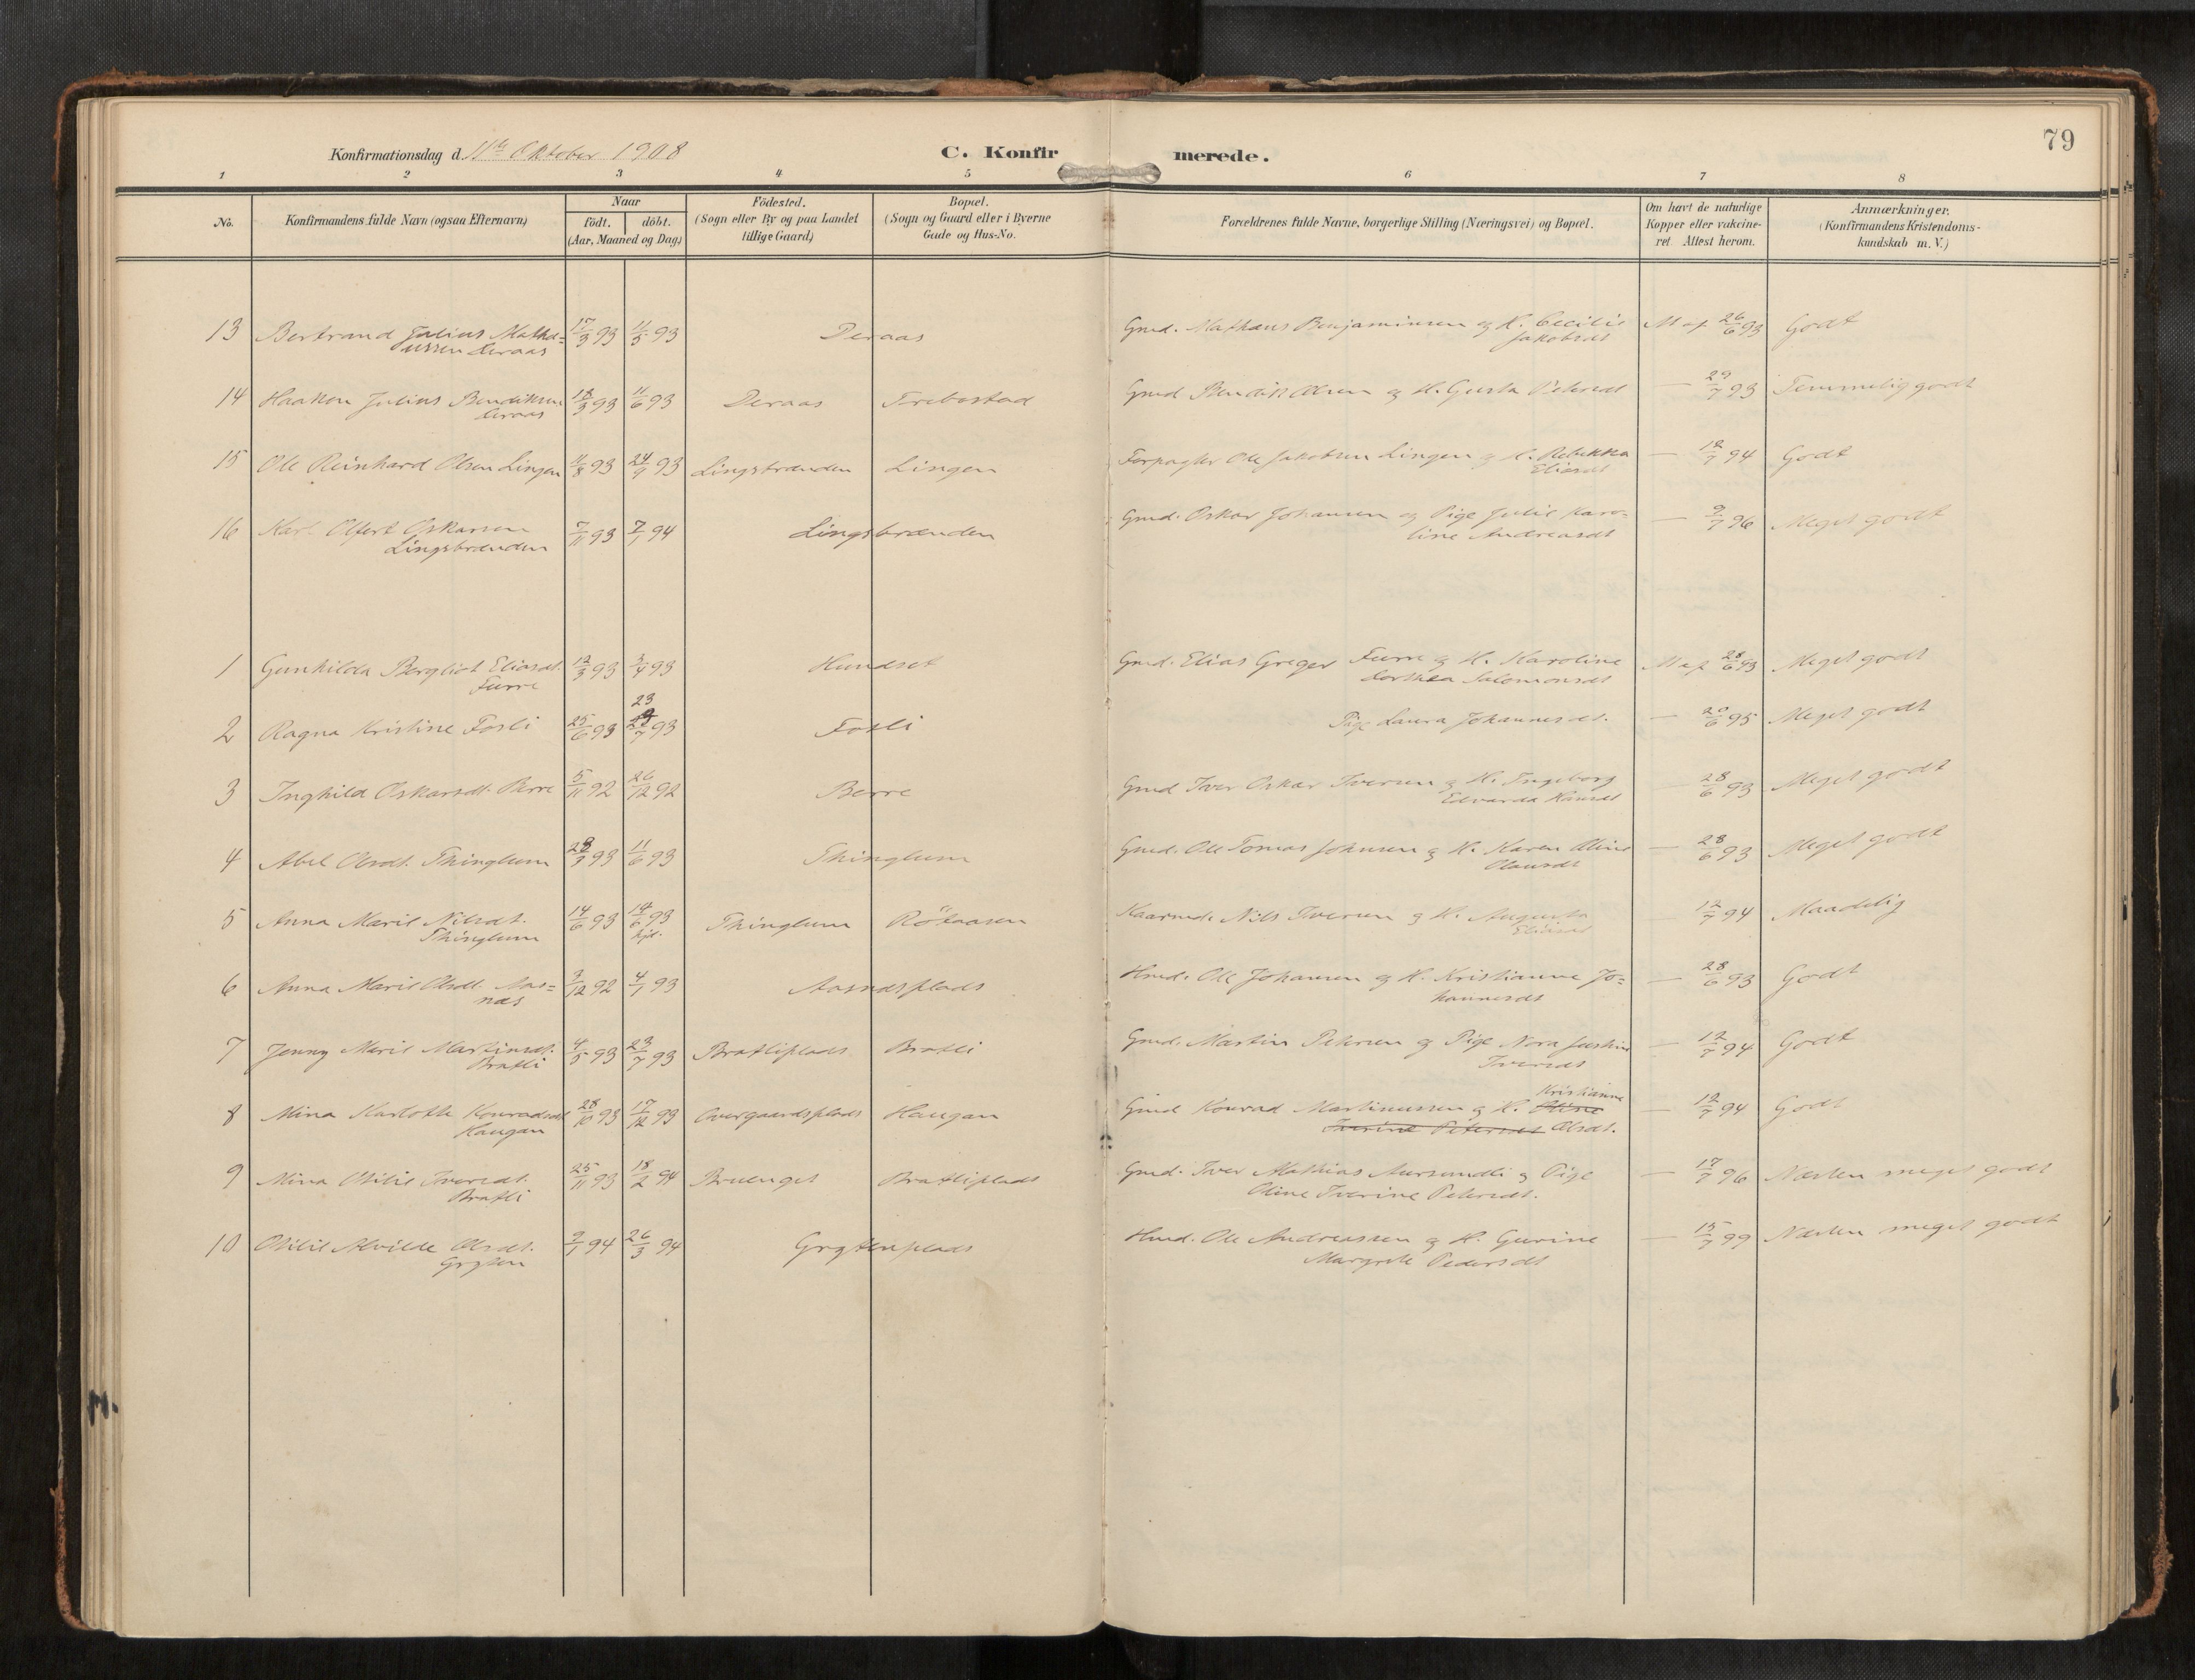 79
Konfirmationsdag d. 11te Oktober 1908
C. Konfirmerede.
1 2 3 4 5 6 7 8
No.
Konfirmandens fulde Navn (ogsaa Efternavn)
Naar
födt. döbt.
(Aar, Maaned og Dag)
Födested.
(Sogn eller By og paa Landet
tillige Gaard)
Bopæl.
(Sogn og Gaard eller i Byerne
Gade og Hus-No.
Forældrenes fulde Navne, borgerlige Stilling (Næringsvei) og Bopæl.
Om havt de naturlige
Kopper eller vakcine-
ret Attest herom.
Anmærkninger.
(Konfirmandens Kristendoms-
kundskab m. V.)
13 Bertrand Julius Mathæ= 17/3 93 11/5 93 Deraas Gmd. Mathæus Benjaminsen og H. Cecilie 26/6 93 Godt
ussen Deraas Jakobsdt
14 Haakon Julius Bendiksen 18/3 93 11/6 93 Deraas Trebostad Gmd Bendik Olsen og H. Gusta Petersdt — 29/7 93 Temmelig godt
Deraas
15 Ole Reinhard Olsen Lingen 11/8 93 24/9 93 Lingsbrænden Lingen Forpagter Ole Jakobsen Lingen og H. Rebekka — 12/7 94 Godt
Eliasdt
16 Karl Olfert Oskarsen 7/11 93 7/1 94 Lingsbrænden Gmd. Oskar Johansen og Pige Julie Karo- — 9/7 96 Meget godt
Lingsbrænden line Andreasdt
1 Gunhilda Bergliot Eliasdt. 12/3 93 3/4 93 Hundset Gmd. Elias Greger Furre og H. Karoline 28/6 93 Meget godt
Furre Dorthea Salomonsdt
23
2 Ragna Kristine Fosli 25/6 93 /7 93 Fosli Pige Laura Johannesdt. — 20/6 95 Meget godt
3 Inghild Oskarsdt. Berre 5/11 92 26/12 92 Berre Gmd Iver Oskar Iversen og H. Ingeborg 28/6 93 Meget godt
Edvarda Hansdt
4 Abel Olsdt. Thinglum 28/3 93 11/6 93 Thinglum Gmd. Ole Tomas Johnsen og H. Karen Oline — 28/6 93 Meget godt
Olausdt
5 Anna Marie Nilsdt. 14/6 93 14/6 93 Thinglum Rötaasen Kaarmd. Nils Iversen og H. Augusta 12/7 94 Maadelig
Thinglum hjd. Eliasdt
6 Anna Marie Olsdt. Aas= 3/12 92 4/1 93 Aasnæsplads Hmd. Ole Johansen og H. Kristianne Jo= — 28/6 93 Godt
næs hannesdt
7 Jenny Marie Martinsdt. 4/5 93 23/7 93 Bratliplads Bratli Gmd. Martin Petersen og Pige Nora Justine — 12/7 94 Godt
Bratli Iversdt
Kristianne
8 Mina Karlotte Konradsdt 28/10 93 17/12 93 Overgaardsplads Haugan Gmd Konrad Martinussen og H. Oline — 12/7 94 Godt
Haugan Iverine Petersdt Olsdt.
9 Mina Otilie Iversdt. 25/11 93 18/2 94 Bruenget Bratliplads Gmd. Iver Mathias Aursundli og Pige — 17/7 96 Næsten meget godt
Bratli Oline Iverine Petersdt.
10 Otilie Alvilde Olsdt. 9/1 94 26/3 94 Grytenplads Hmd. Ole Andreassen og H. Gurine — 15/7 99 Næsten meget godt
Gryten Margrete Pedersdt